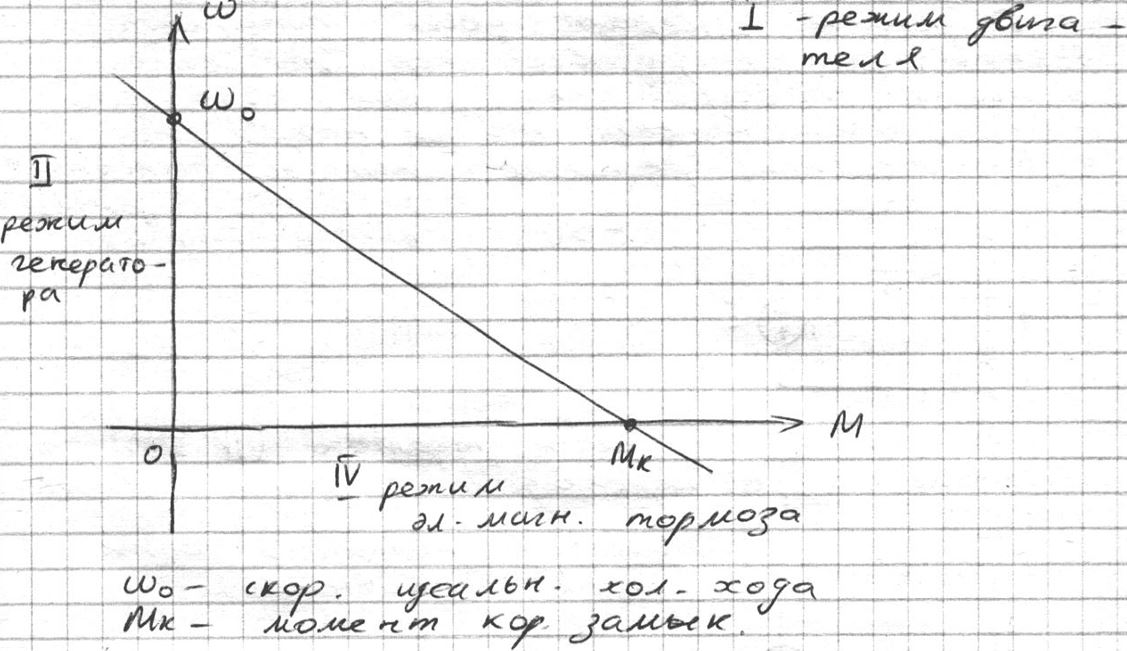 ω
I - режим двига-
теля
ω₀
II
режим
генерато-
ра
M
0
Mк
IV режим
эл. магн. тормоза
ω₀ - скор. идеальн. хол. хода
Mк - момент кор. замык.